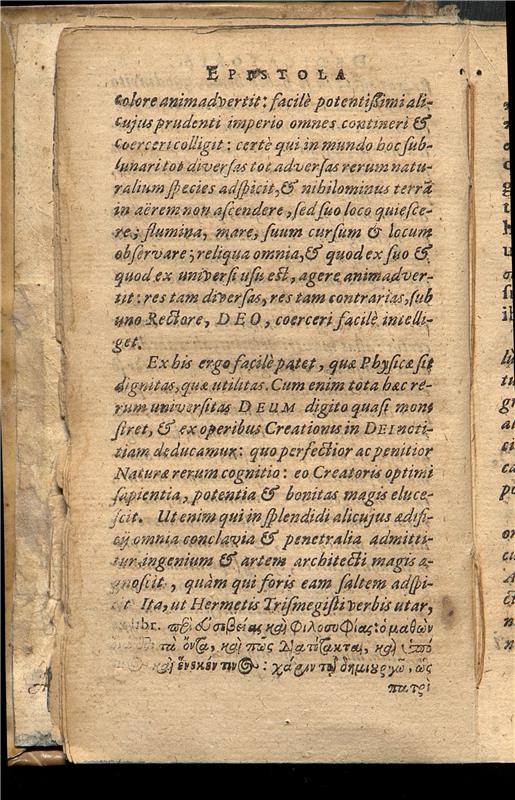 EPISTOLA
colore animadvertit: facilè potentißimi ali-
cujus prudenti imperio omnes contineri &
coerceri colligit: certè qui in mundo hoc sub-
lunari tot diversas tot adversas rerum natu-
ralium species adspicit, & nihilominus terrā
in aërem non ascendere, sed suo loco quiesce-
re; flumina, mare, suum cursum & locum
observare; reliqua omnia, & quod ex suo &
quod ex universi usu est, agere animadver-
tit: res tam diversas, res tam contrarias, sub
uno Rectore, DEO, coerceri facilè intelli-
get.
Ex his ergo facilè patet, quæ Physicæ sit
dignitas, quæ utilitas. Cum enim tota hæc re-
rum universitas DEUM digito quasi mon-
stret, & ex operibus Creationis in DEI noti-
tiam deducamur: quo perfectior ac penitior
Naturæ rerum cognitio: eo Creatoris optimi
sapientia, potentia & bonitas magis eluce-
scit. Ut enim qui in splendidi alicujus ædifi-
cij omnia conclavia & penetralia admitti-
tur, ingenium & artem architecti magis a-
gnoscit, quàm qui foris eam saltem adspi-
cit Ita, ut Hermetis Trismegisti verbis utar,
libr. περὶ εὐσεβείας καὶ Φιλοσοφίας: ὁ μαθὼν
τὰ ὄντα, καὶ πῶς διατέτακται, καὶ ὑπὸ
καὶ ἕνεκεν τίνος: χάριν τῷ δημιουργῷ, ὡς
πατρὶ